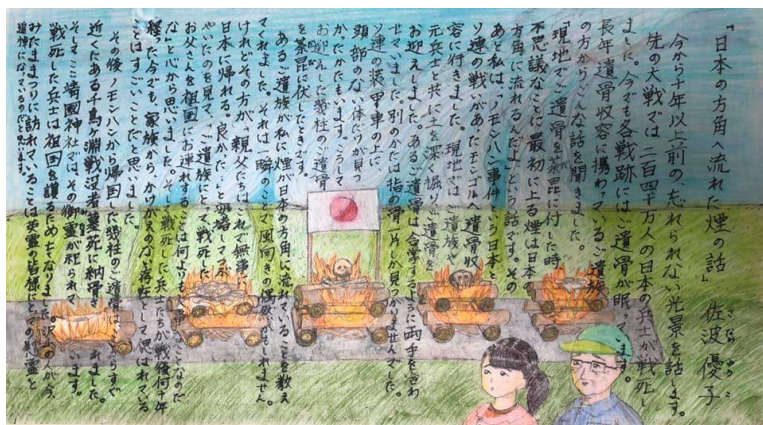 「日本の方角へ流れた煙の話」 佐波優子
さなみゆうこ
今から十年以上前の、忘れられない光景を話します。
先の大戦では二百四十万人の日本の兵士が戦死し
ました。今でも各戦跡には、ご遺骨が眠っています。
長年遺骨収容に携わっているご遺族
の方からこんな話を聞きました。
「現地でご遺骨を荼毘に付した時、
不思議なことに最初に上る煙は日本の
方角に流れるんだよ」という話です。その
あと私は、ノモンハン事件という日本と
ソ連の戦いがあったモンゴルへ遺骨収
容に行きました。現地ではご遺族や
元兵士と共に土を深く掘りご遺骨を
お迎えしました。あるご遺骨は合掌するように両手を合わ
せていました。別のかたは指の骨一片しか見つかりませんでした。
ソ連の装甲車の上に
頭部のない体だけが見つ
かったかたもいます。こうして
お迎えした 柱のご遺骨
を荼毘に伏したときです。
あるご遺族が私に煙が日本の方角に流れていることを教え
てくれました。それは一瞬のことで風向きの偶然かもしれません。
けれどその方が「親父たちはこれで無事に
日本に帰れる。良かった」と号泣してつぶ
やいたのを見て、ご遺族にとって戦死した
お父さんを祖国にお連れすることは何よりも なことなのだ
な、と心から思いました。そして戦死した兵士たちが戦後何十年
経った今でも、家族から、かけがえのない存在として偲ばれている
ことはすごいことだと思いました。
その後、ノモンハンから帰国した 柱のご遺骨は
近くにある千鳥ヶ淵戦没者墓苑に納骨されました。
そしてここ靖国神社では、その御霊が祀られています。
戦死した兵士は祖国を護るため亡くなりました。沢山の人が今、
みたままつりに訪れていることは英霊の皆様にとって 慰霊と
追悼になっているのだと思います。